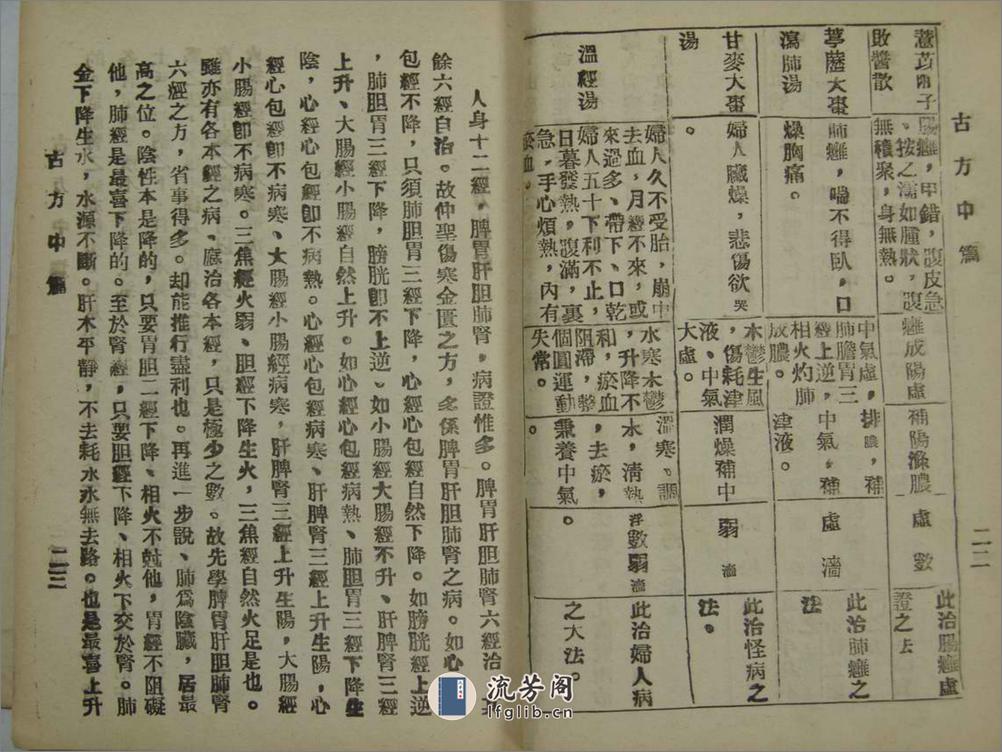 古方中篇
二二
薏苡附子
敗醬散
腸癰,甲錯,腹皮急
、按之濡如腫狀,腹
無積聚,身無熱。
癰成陽虛
補陽滌膿
虛數
此治腸癰虛
證之法
葶藶大棗
瀉肺湯
肺癰,喘不得臥,口
燥胸痛。
中氣虛,
肺膽胃三
經上逆,
相火灼肺
成膿。
排膿,補
中氣,補
津液。
虛濇
此治肺癰之
法
甘麥大棗
湯
婦人臟燥,悲傷欲哭
。
木鬱生風
,傷耗津
液、中氣
大虛。
潤燥補中
弱濇
此治怪病之
法。
溫經湯
婦人久不受胎,崩中
去血,月經不來,或
來過多、帶下、口乾
婦人五十下利不止,
日暮發熱,腹滿,裏
急,手心煩熱,內有
瘀血。
水寒木鬱
,升降不
和,瘀血
阻滯,整
個圓運動
失常。
溫寒、調
水,清熱
,去瘀,
兼養中氣
。
浮數弱濇
此治婦人病
之大法。
人身十二經,脾胃肝胆肺腎,病證惟多。脾胃肝胆肺腎六經治,其
餘六經自治。故仲聖傷寒金匱之方,多係脾胃肝胆肺腎之病。如心
包經不降,只須肺胆胃三經下降,心經心包經自然下降。如膀胱經上逆
,肺胆胃三經下降,膀胱卽不上逆。如小腸經大腸經不升、肝脾腎三經
上升、大腸經小腸經自然上升。如心經心包經病熱、肺胆胃三經下降生
陰,心經心包經卽不病熱。心經心包經病寒、肝脾腎三經上升生陽,心
經心包經卽不病寒、大腸經小腸經病寒,肝脾腎三經上升生陽,大腸經
小腸經卽不病寒。三焦經火弱、胆經下降生火,三焦經自然火足是也。
雖亦有各本經之病、應治各本經,只是極少之數。故先學脾胃肝胆肺腎
六經之方,省事得多。却能推行盡利也。再進一步說、肺爲陰臟,居最
高之位。陰性本是降的,只要胃胆二經下降、相火不尅他,胃經不阻礙
他,肺經是最喜下降的。至於腎經,只要胆經下降、相火下交於腎。肺
金下降生水,水源不斷。肝木平靜,不去耗水水無去路。也是最喜上升
古方中篇
二三
流芳阁
lfglib.cn